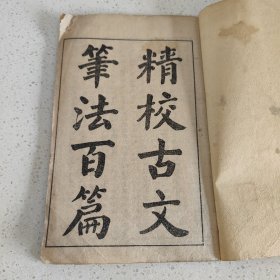 精校古文
筆法百篇